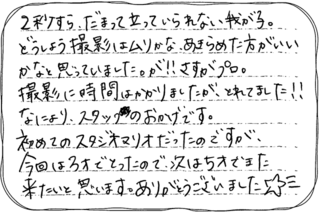 2秒すら、だまって立っていられない我が子。
どうしよう撮影はムリかな、あきらめた方がいい
かなと思っていました。が!!さすがプロ。
撮影に時間はかかりましたが、とれてました!!
なにより、スタッフのおかげです。
初めてのスタジオマリオだったのですが、
今回は3才でとったので、次は5才でまた
来たいと思います。ありがとうございました☆彡